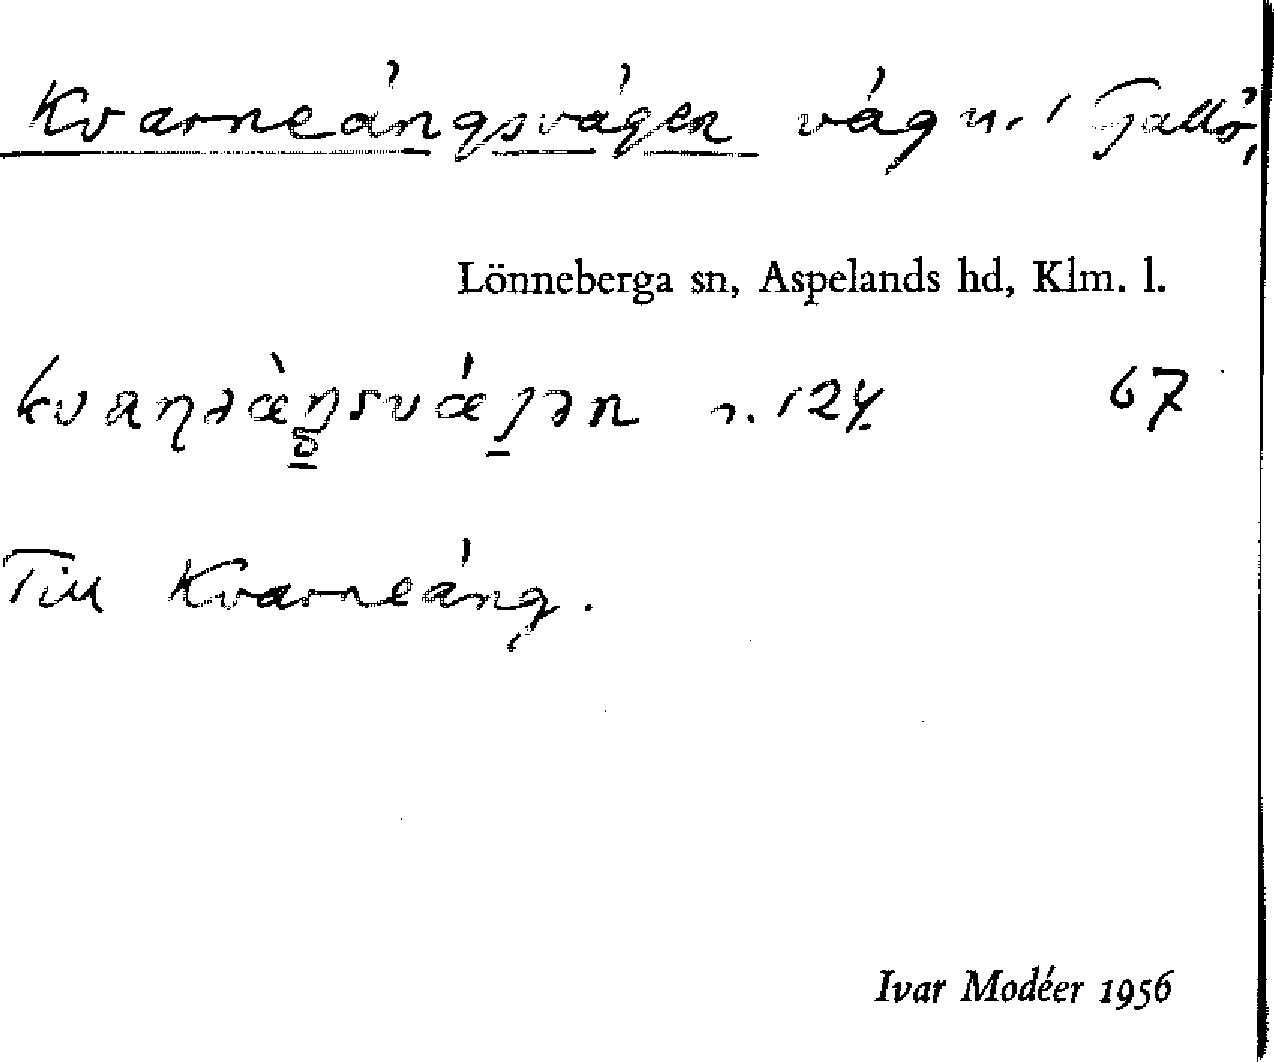 Kvarneängsvägen väg n. i Fallö,
Lönneberga sn, Aspelands hd, Klm. l.
67
Till Kvarneäng.
Ivar Modéer 1956